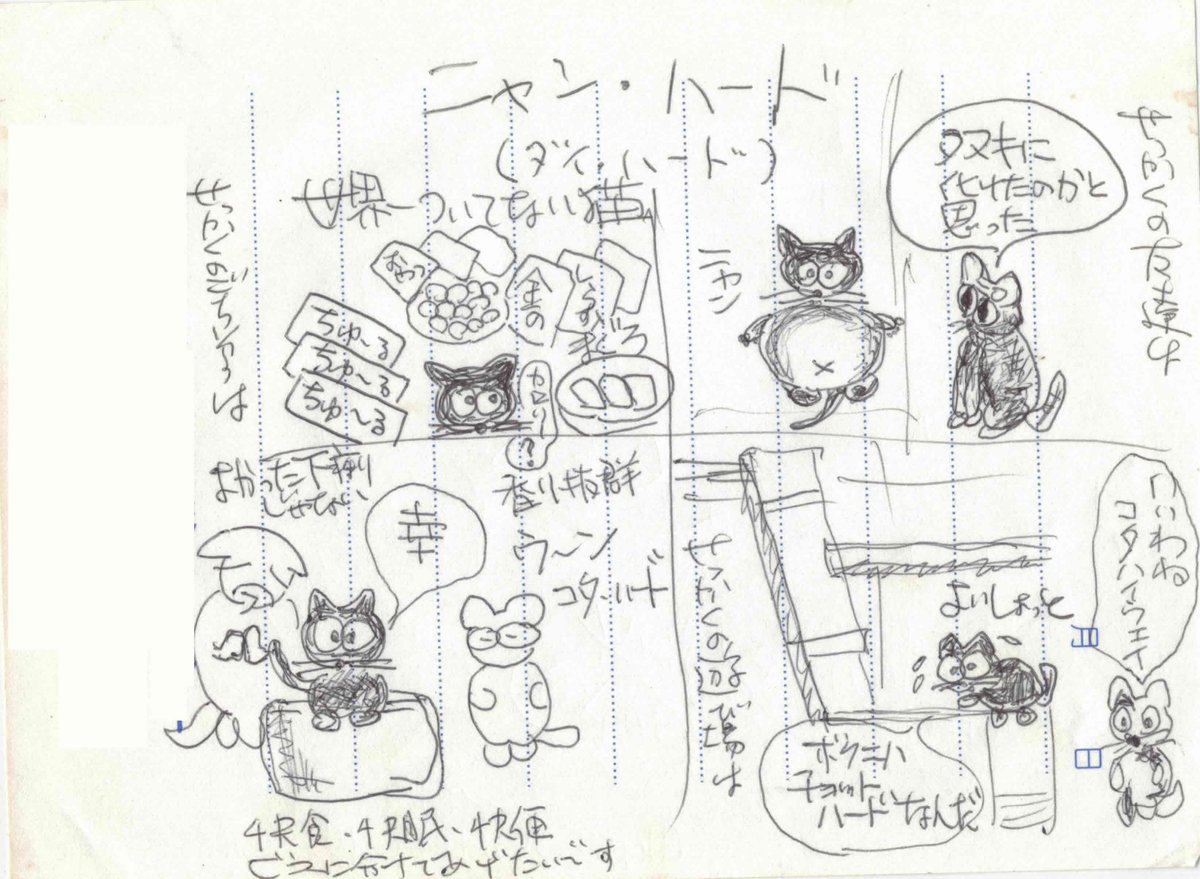 ニャン・ハード
(ダイ・ハード)
世界一ついてない猫
せっかくの
タヌキに
化けたのかと
思った
ニャン
せっかくのごちそうは
おやつ
金の
しらす
まぐろ
ちゅ〜る
ちゅ〜る
ちゅ〜る
カロリー?
せっかくの遊び場は
ここわね
よいしょっと
ボクニハ
チョット
ハードなんだ
香り抜群
ウ〜ン
コダ・ハード
よかった下痢
じゃない
幸
快食・快眠・快便
ビスに分けてあげたいです